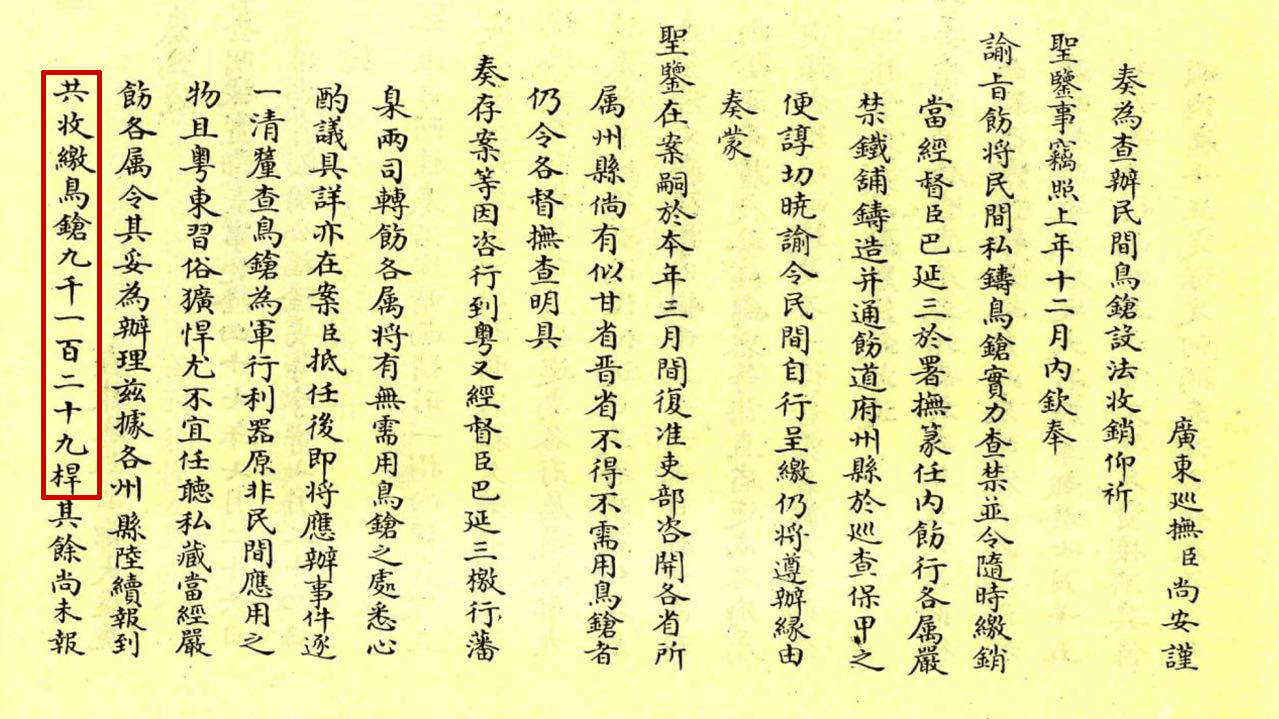 廣東巡撫臣尚安謹
奏為查辦民間鳥鎗設法收銷仰祈
聖鑒事竊照上年十二月內欽奉
諭旨飭將民間私鑄鳥鎗實力查禁並令隨時繳銷
當經督臣巴延三於署撫篆任內飭行各属嚴
禁鐵舖鑄造并通飭道府州縣於巡查保甲之
便諄切曉諭令民間自行呈繳仍將遵辦緣由
奏蒙
聖鑒在案嗣於本年三月間復准吏部咨開各省所
属州縣倘有似甘省晋省不得不需用鳥鎗者
仍令各督撫查明具
奏存案等因咨行到粵又經督臣巴延三檄行藩
臬兩司轉飭各属將有無需用鳥鎗之處悉心
酌議具詳亦在案臣抵任後即將應辦事件逐
一清釐查鳥鎗為軍行利器原非民間應用之
物且粵東習俗獷悍尤不宜任聽私藏當經嚴
飭各属令其妥為辦理茲據各州縣陸續報到
共收繳鳥鎗九千一百二十九桿其餘尚未報